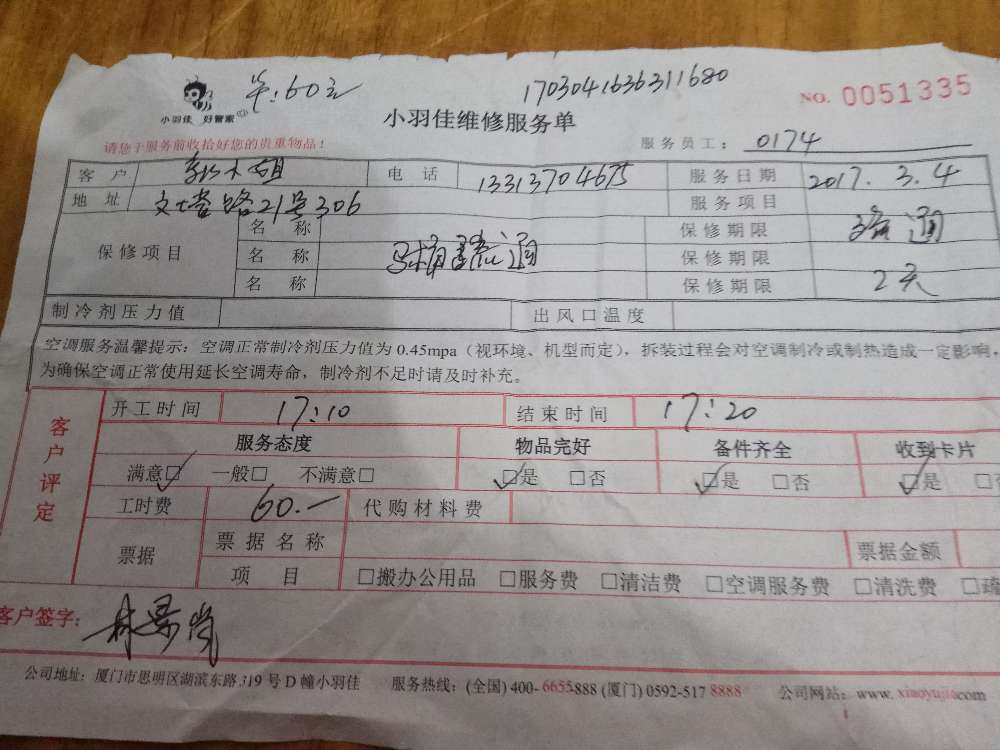 单:60元 1703041636311680 NO. 0051335
小羽佳 好管家
小羽佳维修服务单
请您于服务前收拾好您的贵重物品! 服务员工: 0174
客户 小姐 电话 13313704675 服务日期 2017.3.4
地址 文塔路21号306 服务项目
保修项目 名称 保修期限 疏通
名称 疏通 保修期限
名称 保修期限 2天
制冷剂压力值 出风口温度
空调服务温馨提示:空调正常制冷剂压力值为 0.45mpa(视环境、机型而定),拆装过程会对空调制冷或制热造成一定影响,
为确保空调正常使用延长空调寿命,制冷剂不足时请及时补充。
客户评定
开工时间 17:10 结束时间 17:20
服务态度 物品完好 备件齐全 收到卡片
满意□ 一般□ 不满意□ □是 □否 □是 □否 □是 □否
工时费 60.— 代购材料费
票据 票据名称 票据金额
项目 □搬办公用品 □服务费 □清洁费 □空调服务费 □清洗费 □疏
客户签字:
公司地址:厦门市思明区湖滨东路319号D幢小羽佳 服务热线:(全国)400-6655888(厦门)0592-5178888 公司网站:www.xiaoyujia.com